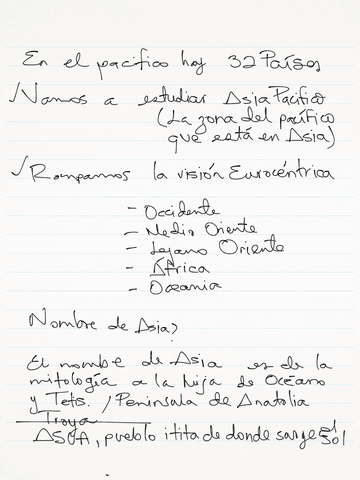 En el pacifico hay 32 Países
✓Vamos a estudiar Asia Pacifico
(La zona del pacífico
que está en Asia)
✓Rompamos la visión Eurocéntrica
- Occidente
- Medio Oriente
- Lejano Oriente
- África
- Oceania
Nombre de Asia?
El nombre de Asia es de la
mitología a la hija de Océano
y Tetis. / Península de Anatolia
Troya
ASUA, pueblo itita de donde surge el
sol